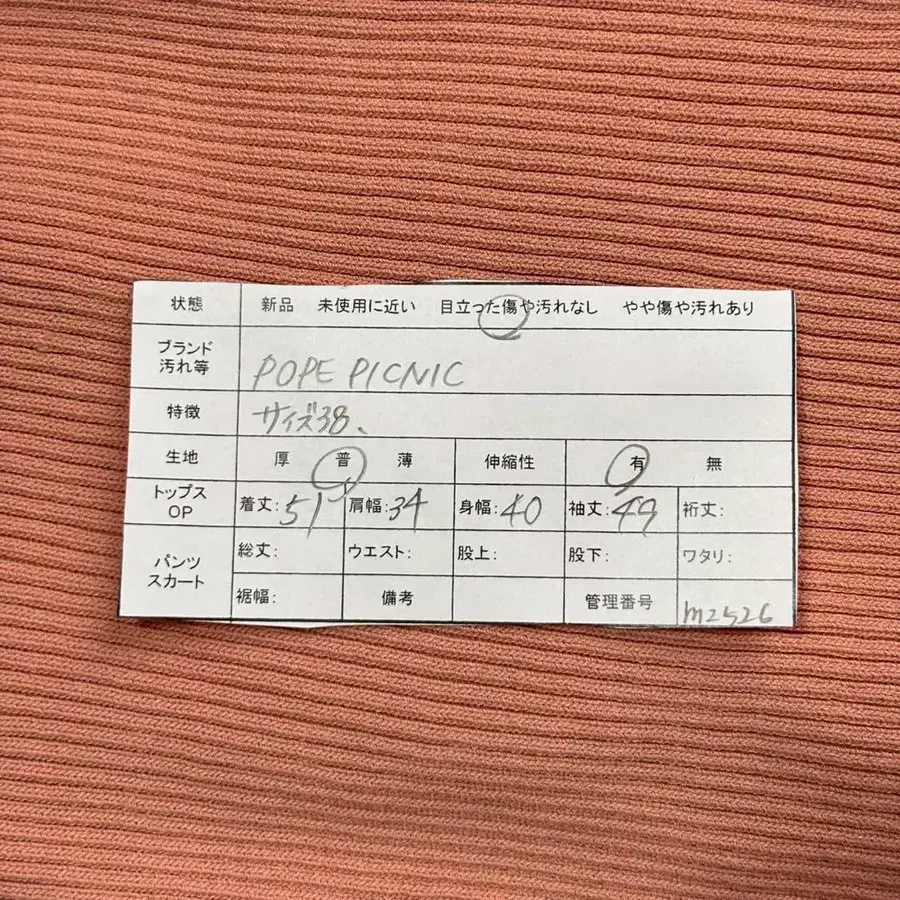 状態 新品 未使用に近い 目立った傷や汚れなし やや傷や汚れあり
ブランド
汚れ等 POPE PICNIC
特徴 サイズ38、
生地 厚 普 薄 伸縮性 有 無
トップス
OP 着丈:51 肩幅:34 身幅:40 袖丈:49 裄丈:
パンツ
スカート 総丈: ウエスト: 股上: 股下: ワタリ:
裾幅: 備考 管理番号 m2526